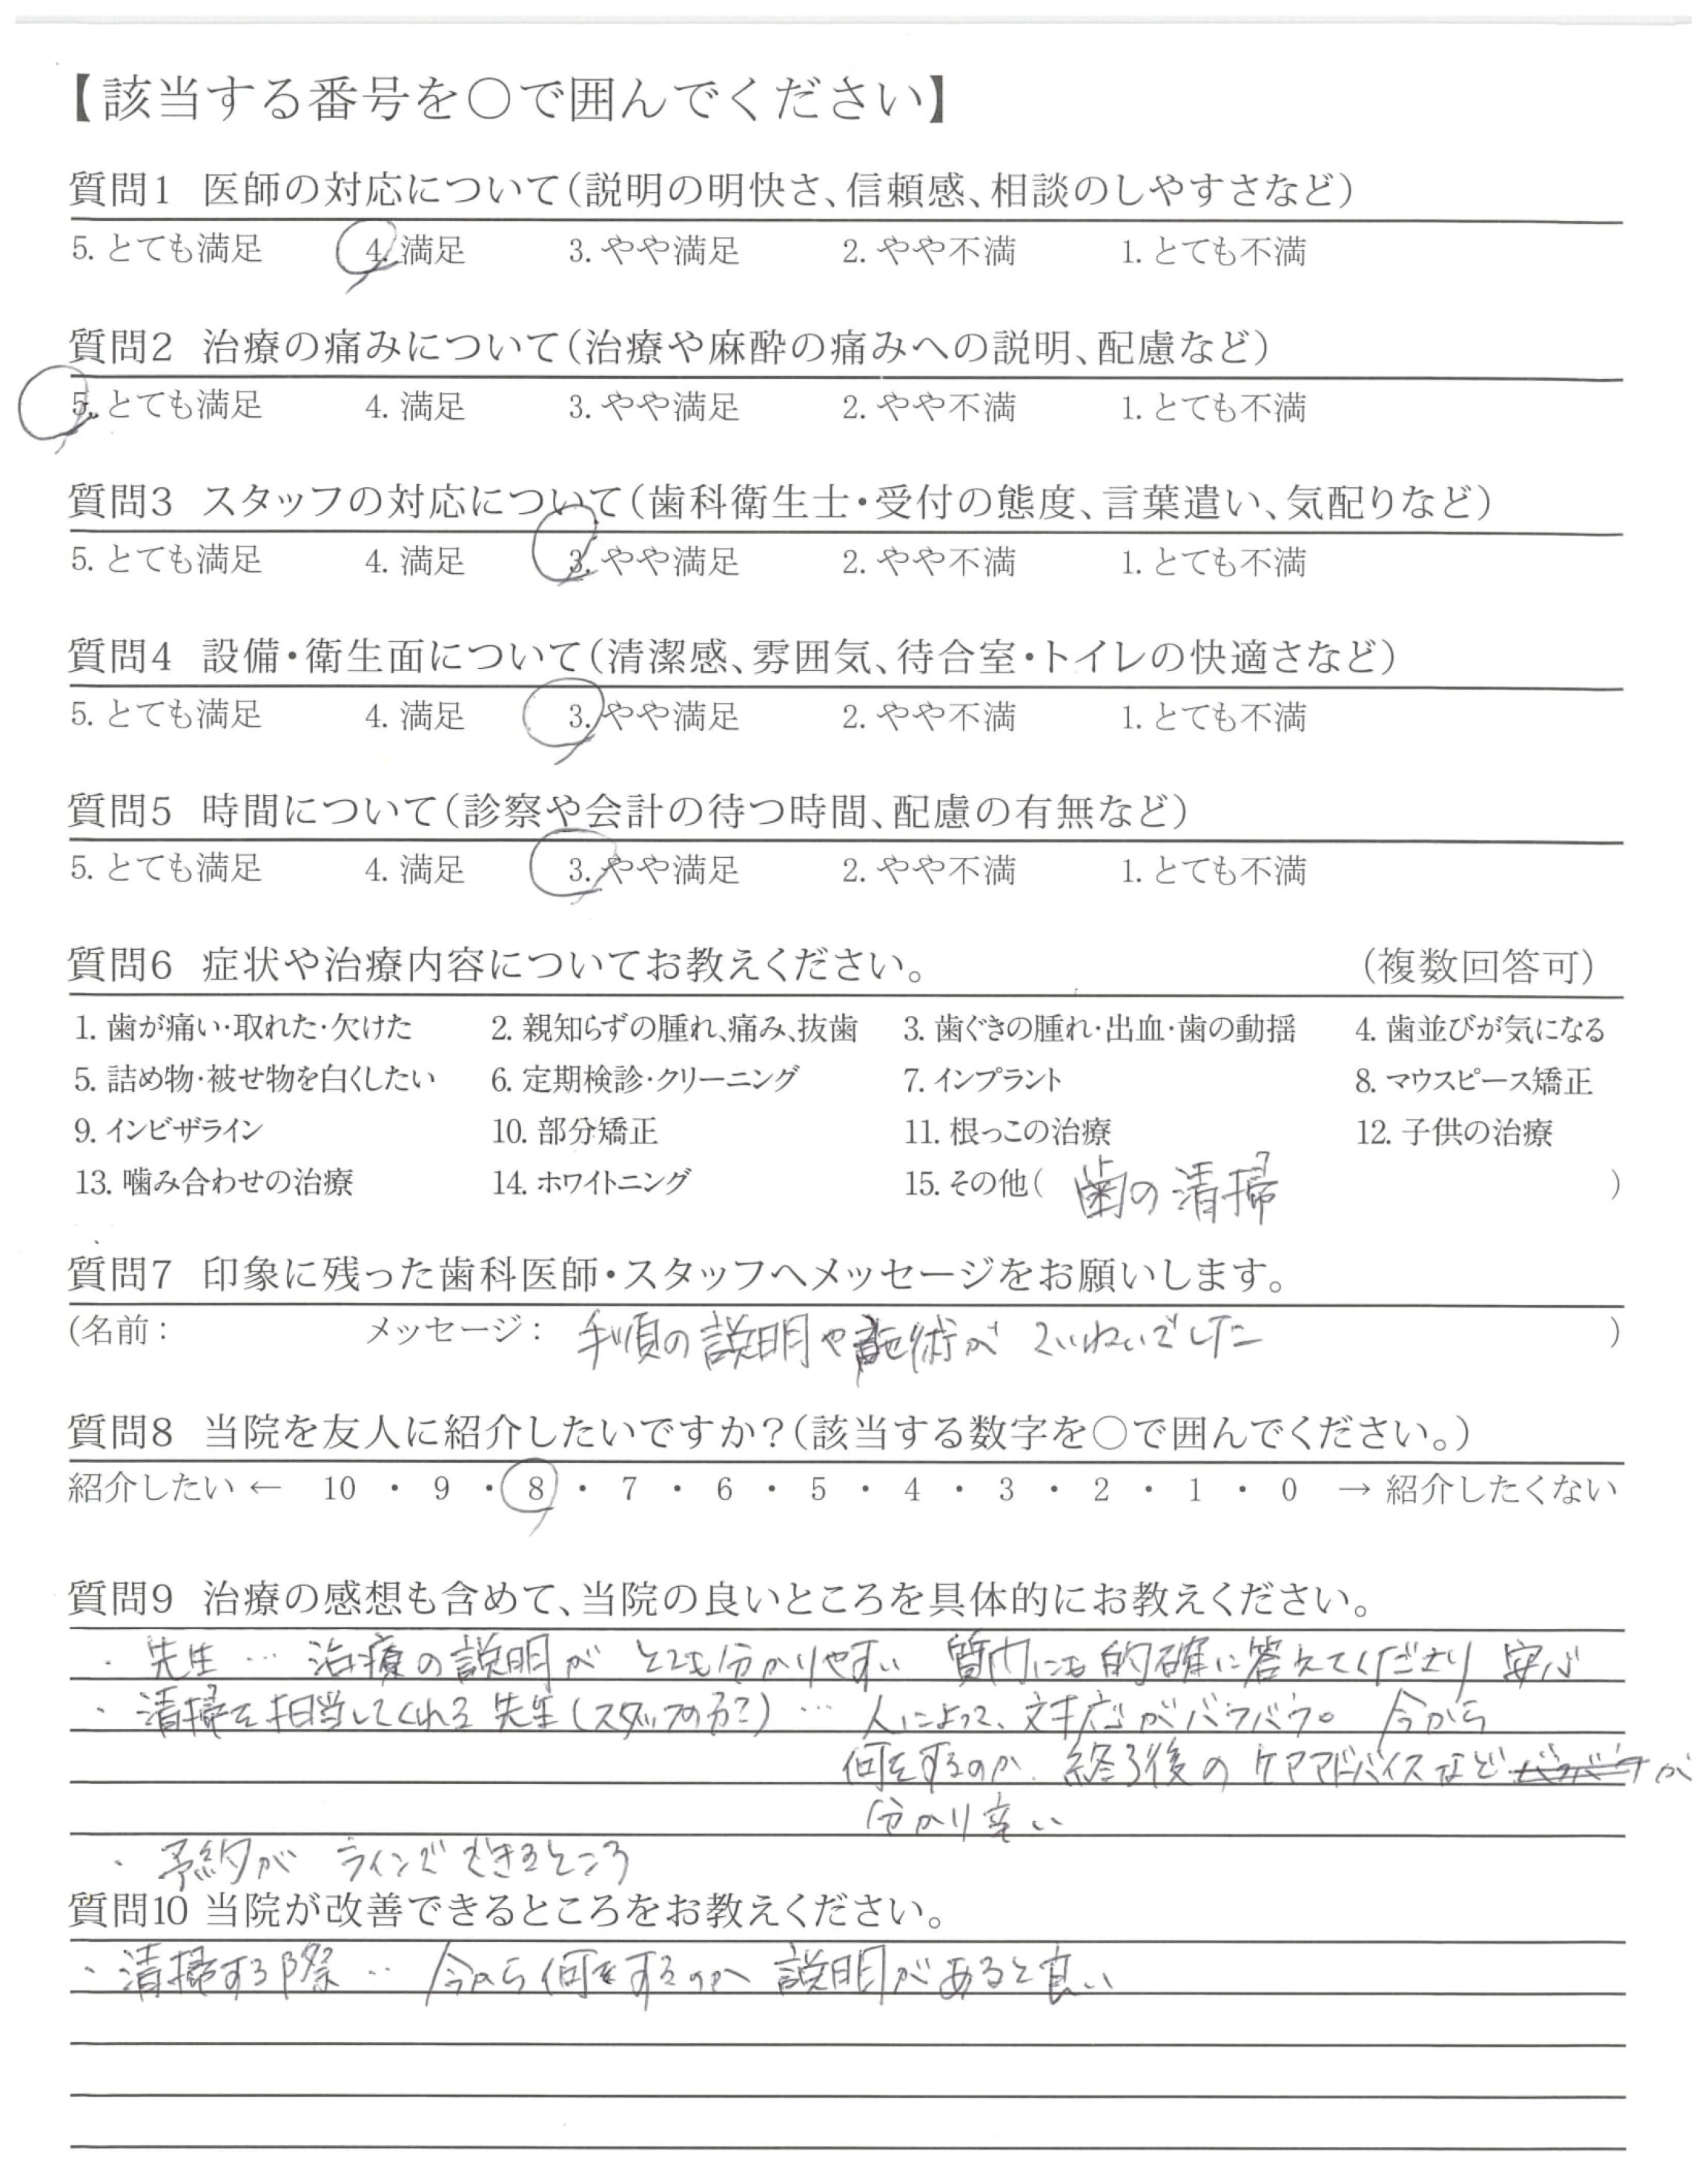 【該当する番号を○で囲んでください】
質問1 医師の対応について(説明の明快さ、信頼感、相談のしやすさなど)
5. とても満足 4. 満足 3. やや満足 2. やや不満 1. とても不満
質問2 治療の痛みについて(治療や麻酔の痛みへの説明、配慮など)
5. とても満足 4. 満足 3. やや満足 2. やや不満 1. とても不満
質問3 スタッフの対応について(歯科衛生士・受付の態度、言葉遣い、気配りなど)
5. とても満足 4. 満足 3. やや満足 2. やや不満 1. とても不満
質問4 設備・衛生面について(清潔感、雰囲気、待合室・トイレの快適さなど)
5. とても満足 4. 満足 3. やや満足 2. やや不満 1. とても不満
質問5 時間について(診察や会計の待つ時間、配慮の有無など)
5. とても満足 4. 満足 3. やや満足 2. やや不満 1. とても不満
質問6 症状や治療内容についてお教えください。 (複数回答可)
1. 歯が痛い・取れた・欠けた 2. 親知らずの腫れ、痛み、抜歯 3. 歯ぐきの腫れ・出血・歯の動揺 4. 歯並びが気になる
5. 詰め物・被せ物を白くしたい 6. 定期検診・クリーニング 7. インプラント 8. マウスピース矯正
9. インビザライン 10. 部分矯正 11. 根っこの治療 12. 子供の治療
13. 噛み合わせの治療 14. ホワイトニング 15. その他( 歯の清掃 )
質問7 印象に残った歯科医師・スタッフへメッセージをお願いします。
(名前: メッセージ: 手順の説明や施術が ていねいでした )
質問8 当院を友人に紹介したいですか?(該当する数字を○で囲んでください。)
紹介したい ← 10 ・ 9 ・ 8 ・ 7 ・ 6 ・ 5 ・ 4 ・ 3 ・ 2 ・ 1 ・ 0 → 紹介したくない
質問9 治療の感想も含めて、当院の良いところを具体的にお教えください。
・ 先生 … 治療の説明が とても分かりやすい 質問にも的確に答えてくださり 安心
・ 清掃を担当してくれる先生(スタッフの方?) … 人によって、対応がバラバラ。 今から
何をするのか、終了後の ケアアドバイスなどが
分かり辛い
・ 予約が ラインでできるところ
質問10 当院が改善できるところをお教えください。
・ 清掃する際 ‥ 今から何をするのか 説明があると良い